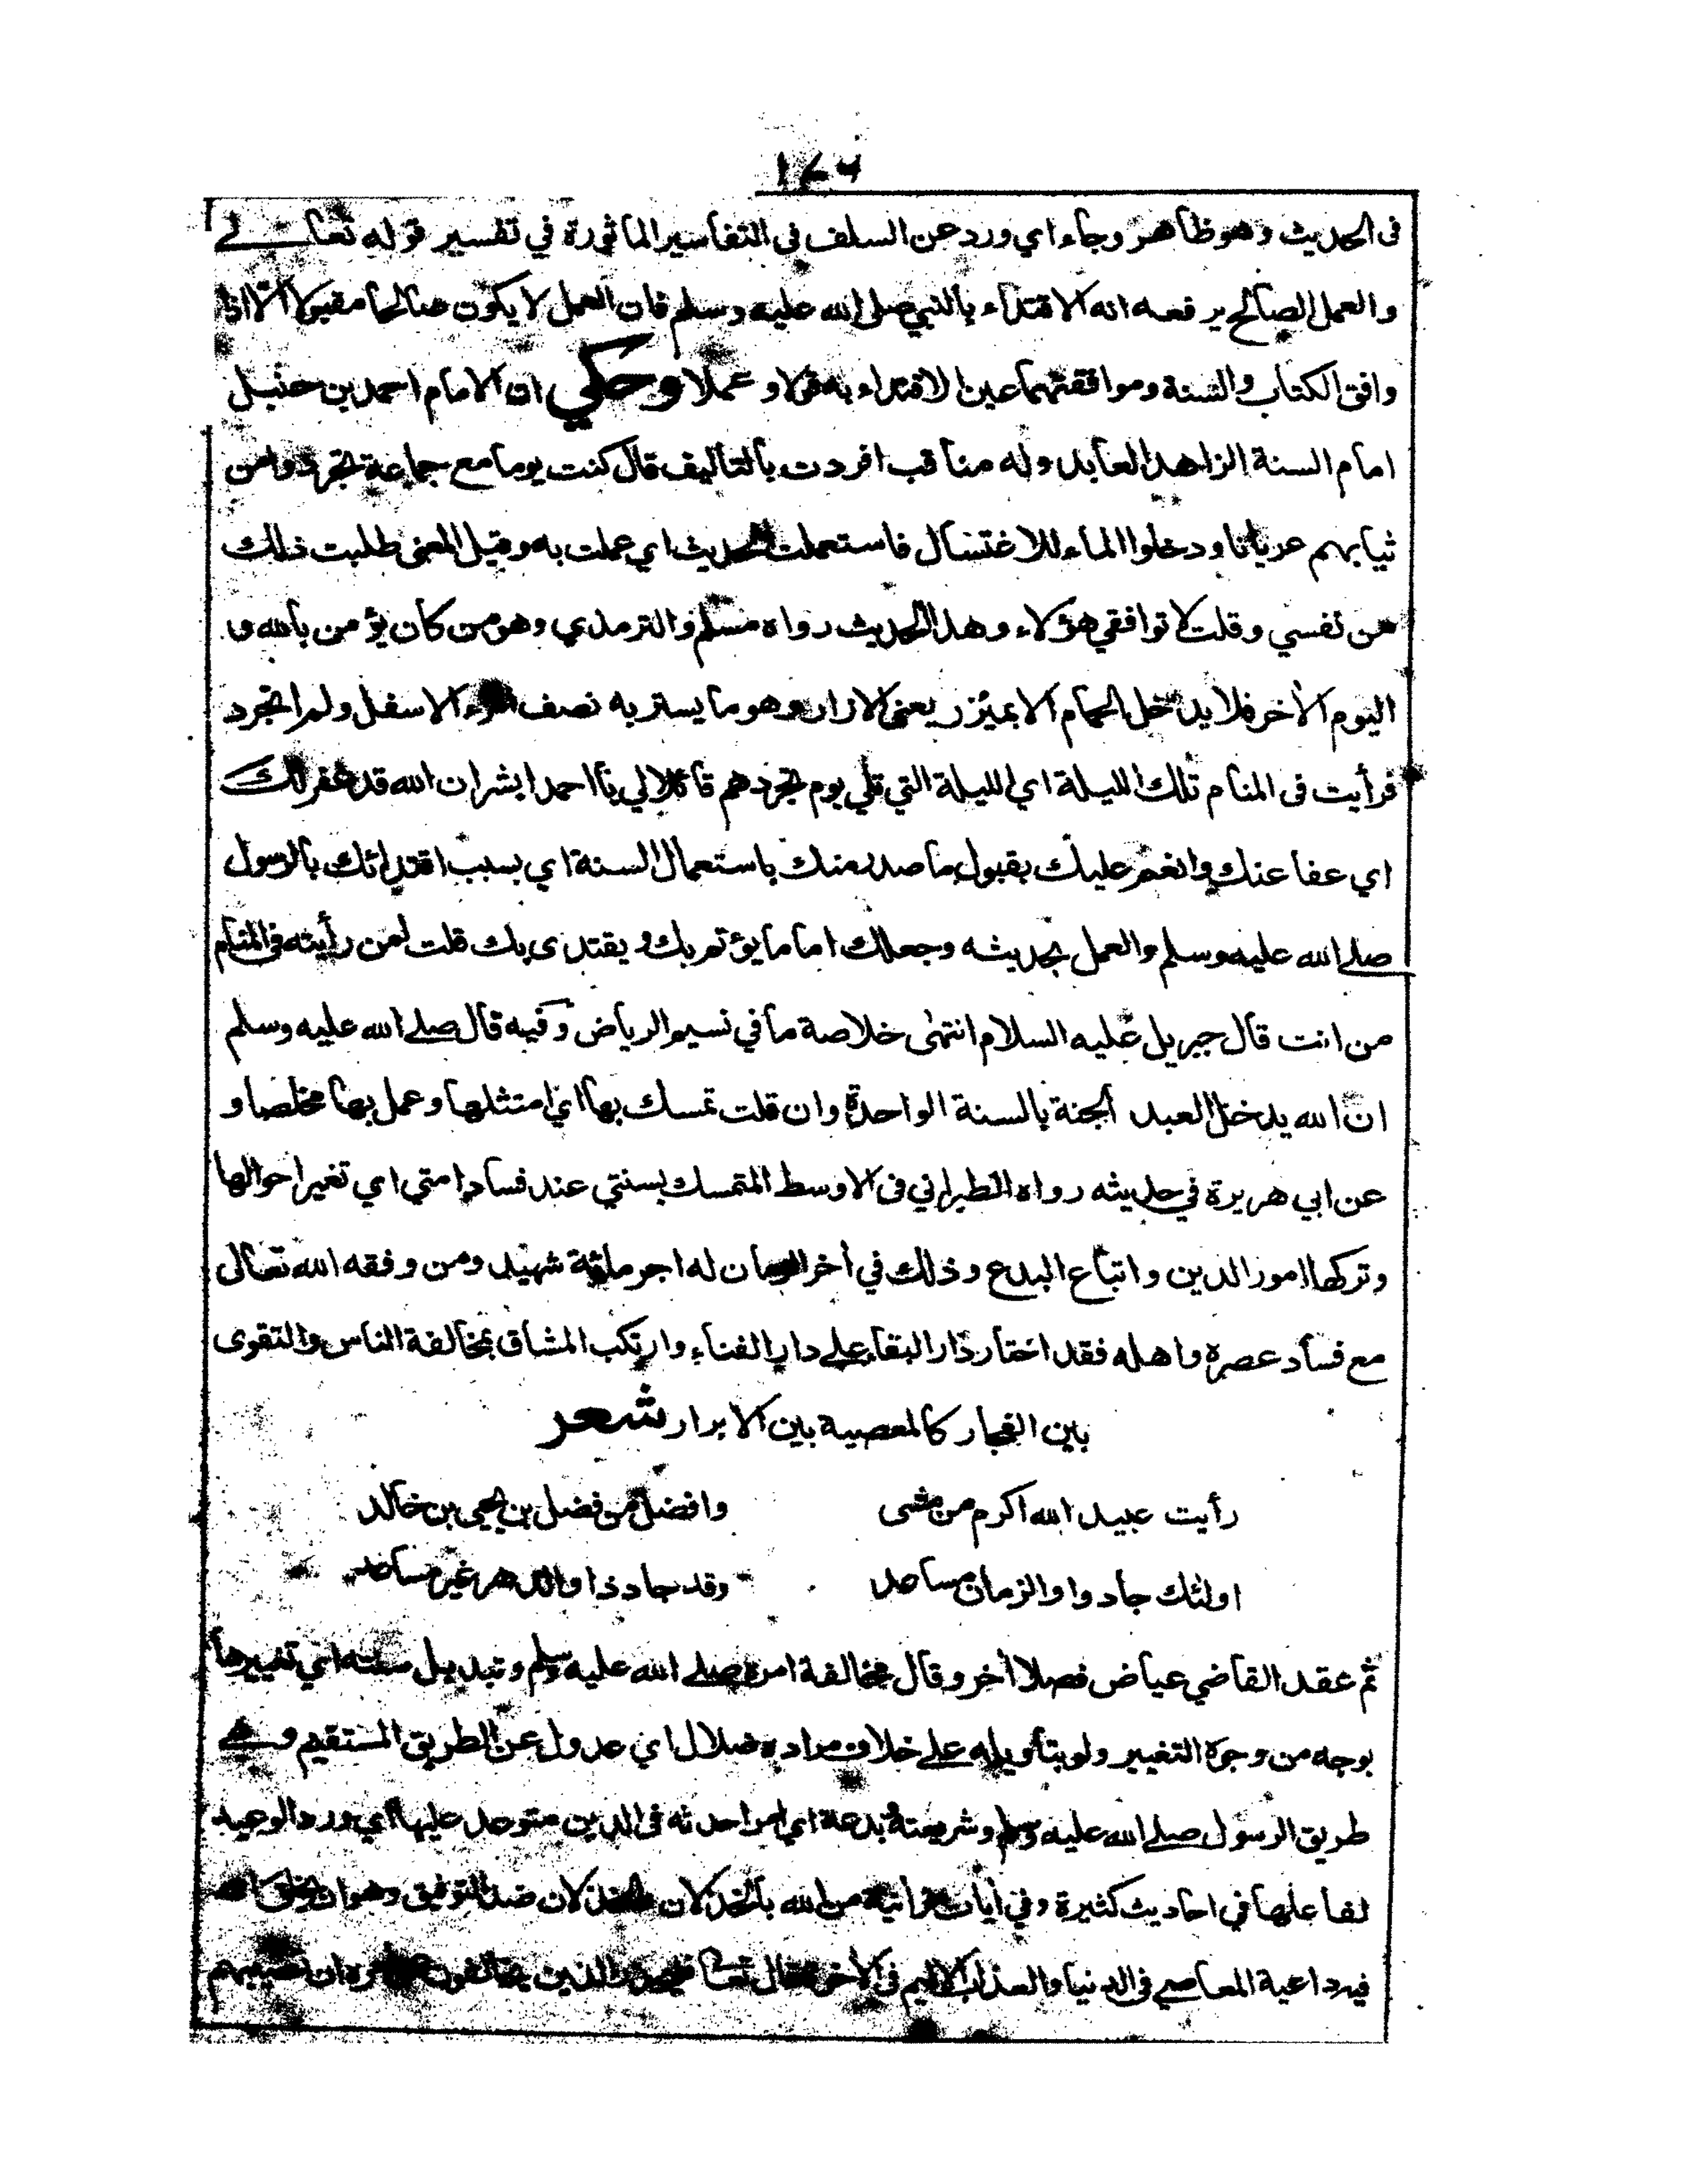 ١٤٦
فى الحديث وهو ظاهر وجاء اي ورد عن السلف فى التفاسير الماثورة في تفسير قوله تعالے
والعمل الصالح يرفعه انه الاقتداء بالنبي صلى الله عليه وسلم فان العمل لا يكون صالحا مقبولا الا اذا
وافق الكتاب والسنة وموافقتهما عين الاقتداء به قولا و عملا وحكي ان الامام احمد بن حنبل
امام السنة الزاهد العابد وله مناقب افردت بالتاليف قال كنت يوما مع جماعة تجردوا من
ثيابهم عريانا ودخلوا الماء للاغتسال فاستعملت الحديث اي عملت به وقيل المعنى طلبت ذلك
من نفسي وقلت لا توافقي هؤلاء وهذا الحديث رواه مسلم والترمذي وهو من كان يؤمن بالله و
اليوم الأخر فلا يدخل الحمام الا بميزر يعنى الازار وهو ما يستر به نصف المرء الاسفل ولم اتجرد
فرأيت فى المنام تلك الليلة اي الليلة التي تلي يوم تجردهم قائلا لي يا احمد ابشر ان الله قد غفر لك
اي عفا عنك وانعم عليك بقبول ما صدر منك باستعمال السنة اي بسبب اقتدائك بالرسول
صلے الله عليه وسلم والعمل بحديثه وجعلك اماما يؤتم بك و يقتدى بك قلت لمن رأيته فى المنام
من انت قال جبريل عليه السلام انتهى خلاصة ما في نسيم الرياض وفيه قال صلے الله عليه وسلم
ان الله يدخل العبد الجنة بالسنة الواحدة وان قلت تمسك بها اي امتثلها وعمل بها مخلصا و
عن ابي هريرة في حديثه رواه الطبراني فى الاوسط المتمسك بسنتي عند فساد امتي اي تغير احوالها
وتركها امور الدين واتباع البدع وذلك في أخر الزمان له اجر مائة شهيد ومن وفقه الله تعالى
مع فساد عصره واهله فقد اختار دار البقاء علے دار الفناء وارتكب المشاق بمخالفة الناس والتقوى
بين الفجار كالمعصية بين الابرار شعر
رأيت عبيد الله اكرم من مشى وافضل من فضل بن يحيى بن خالد
اولئك جادوا والزمان مساعد وقد جاد ذا والدهر غير مساعد
ثم عقد القاضي عياض فصلا أخر وقال مخالفة امره صلے الله عليه وسلم وتبديل سنته اي تغييرها
بوجه من وجوه التغيير ولو بتأويله علے خلاف مراده ضلال اي عدول عن الطريق المستقيم وهے
طريق الرسول صلے الله عليه وسلم وشريعته وبدعة اي امر احدثه فى الدين متوعد عليها اي ورد الوعيد
لفاعلها في احاديث كثيرة وفي أيات قرانية من الله بالخذلان والخذلان ضد التوفيق وهو ان يخلق الله
فيه داعية المعاصي فى الدنيا والعذاب الاليم فى الأخرة قال تعالى فليحذر الذين يخالفون عن امره ان تصيبهم